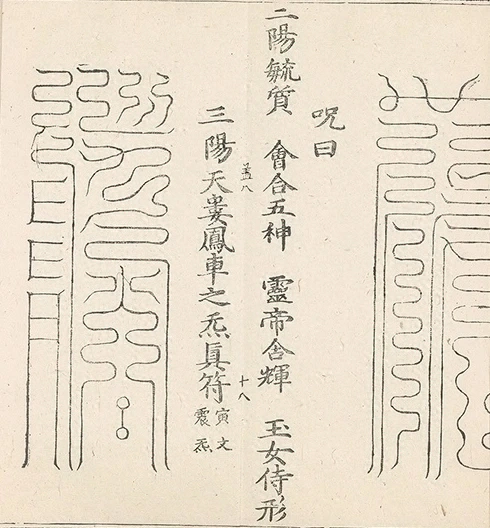 呪曰
二陽毓质 會合五神 靈帝含輝 玉女侍形
三陽天婁鳳車之炁眞符
十八
寅文
震炁